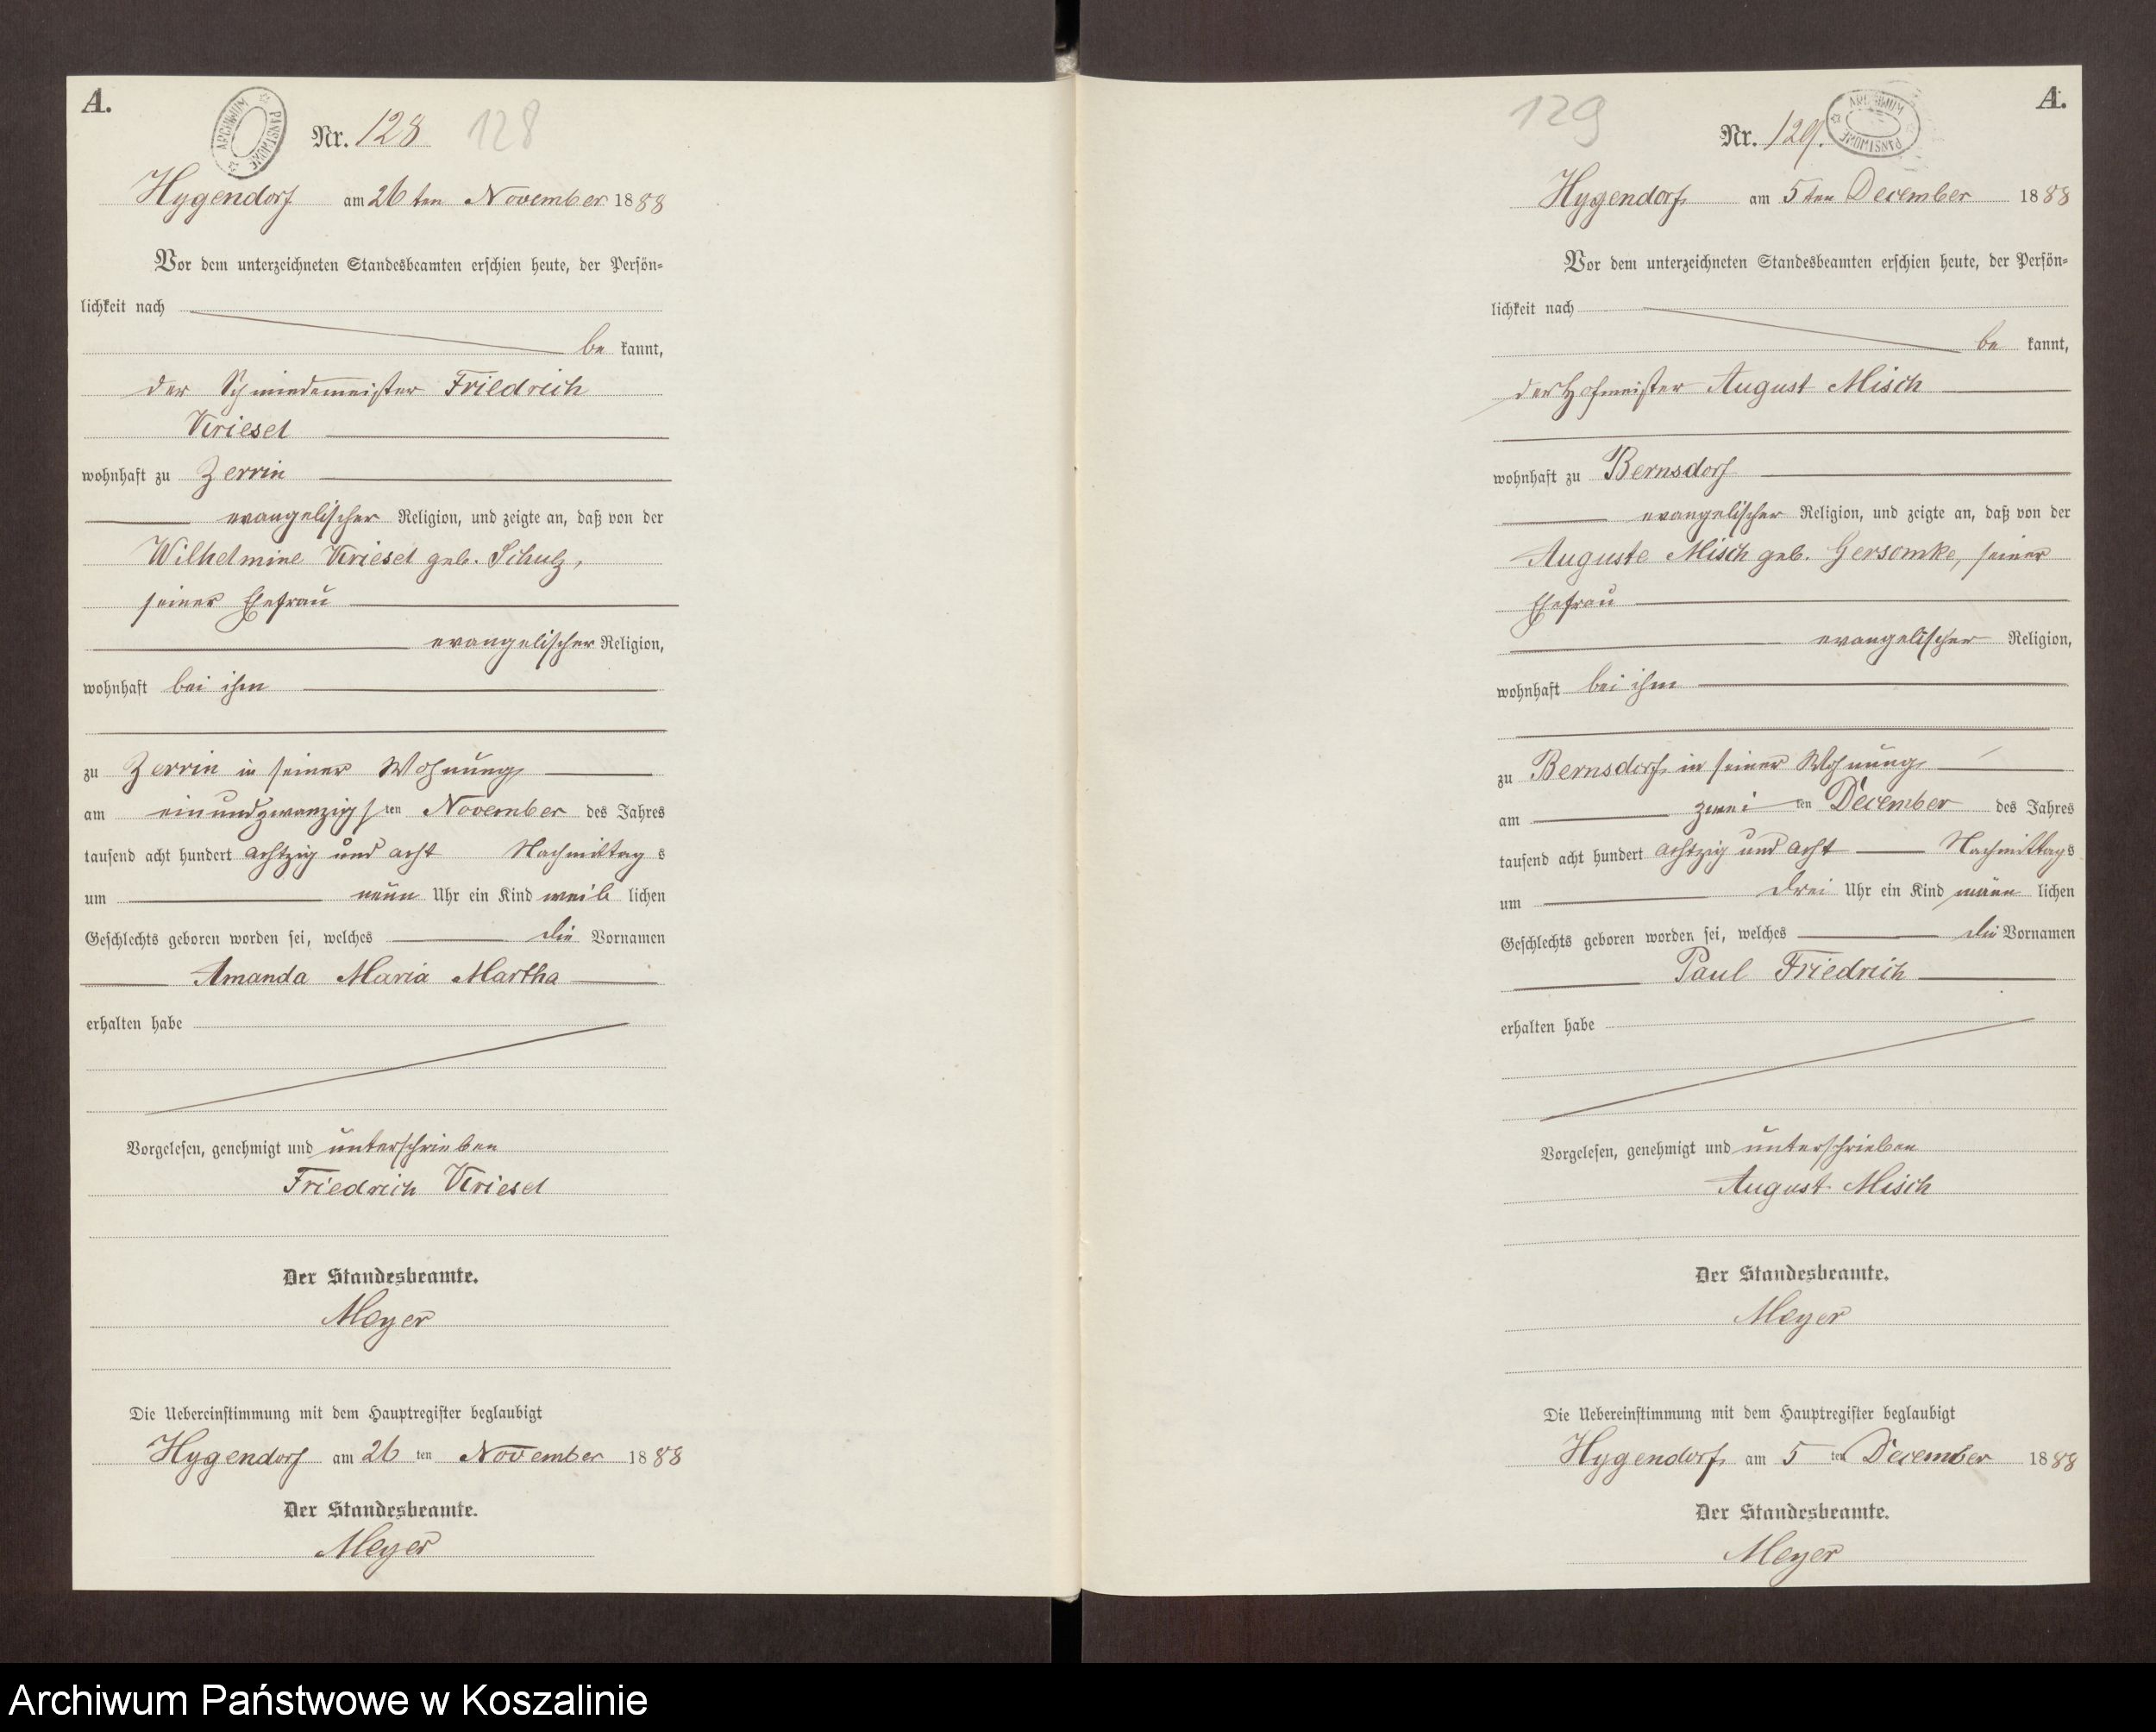 A.
ARCHIWUM PAŃSTWOWE
Nr. 128 128
Hygendorf am 26 ten November 1888
Vor dem unterzeichneten Standesbeamten erschien heute, der Persön=
lichkeit nach
be kannt,
der Schmiedemeister Friedrich
Kriesel
wohnhaft zu Zerrin
evangelischer Religion, und zeigte an, daß von der
Wilhelmine Kriesel geb. Schulz,
seiner Ehefrau
evangelischer Religion,
wohnhaft bei ihm
zu Zerrin in seiner Wohnung
am einundzwanzigs ten November des Jahres
tausend acht hundert achtzig und acht Nachmittag s
um neun Uhr ein Kind weib lichen
Geschlechts geboren worden sei, welches die Vornamen
Amanda Maria Martha
erhalten habe
Vorgelesen, genehmigt und unterschrieben
Friedrich Kriesel
Der Standesbeamte.
Meyer
Die Uebereinstimmung mit dem Hauptregister beglaubigt
Hygendorf am 26 ten November 1888
Der Standesbeamte.
Meyer
129 A.
Nr. 129. ARCHIWUM PAŃSTWOWE
Hygendorf am 5 ten December 1888
Vor dem unterzeichneten Standesbeamten erschien heute, der Persön=
lichkeit nach
be kannt,
der Hofmeister August Misch
wohnhaft zu Bernsdorf
evangelischer Religion, und zeigte an, daß von der
Auguste Misch geb. Gersomke, seiner
Ehefrau
evangelischer Religion,
wohnhaft bei ihm
zu Bernsdorf in seiner Wohnung
am zwei ten December des Jahres
tausend acht hundert achtzig und acht Nachmittags
um drei Uhr ein Kind männ lichen
Geschlechts geboren worden sei, welches die Vornamen
Paul Friedrich
erhalten habe
Vorgelesen, genehmigt und unterschrieben
August Misch
Der Standesbeamte.
Meyer
Die Uebereinstimmung mit dem Hauptregister beglaubigt
Hygendorf am 5 ten December 1888
Der Standesbeamte.
Meyer
Archiwum Państwowe w Koszalinie